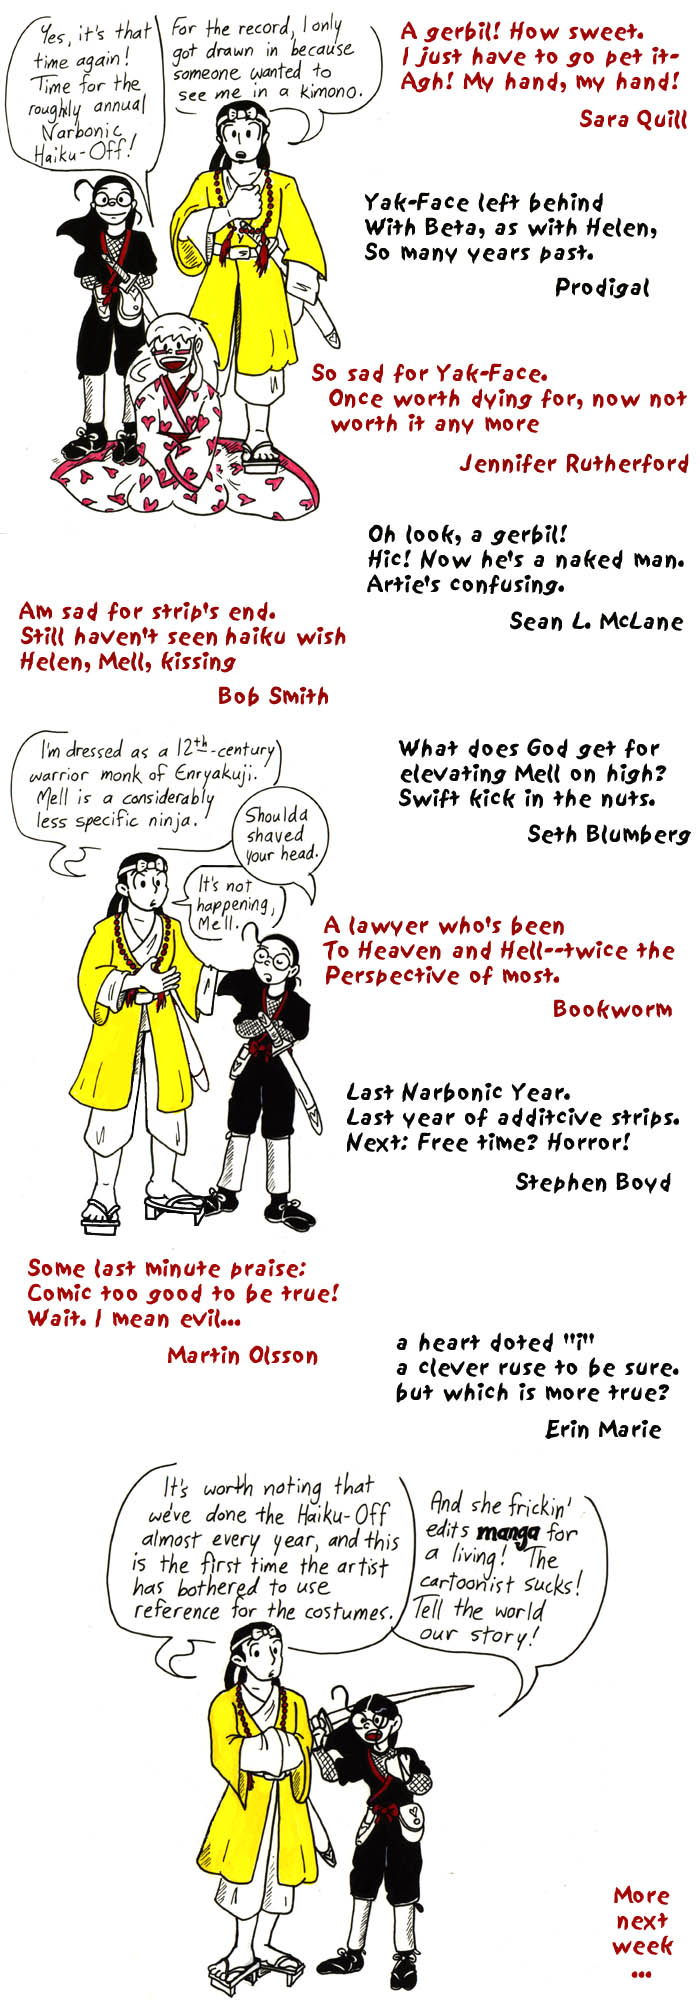 Yes, it's that
time again!
Time for the
roughly annual
Narbonic
Haiku-Off!
For the record, I only
got drawn in because
someone wanted to
see me in a kimono.
A gerbil! How sweet.
I just have to go pet it-
Agh! My hand, my hand!
Sara Quill
Yak-Face left behind
With Beta, as with Helen,
So many years past.
Prodigal
So sad for Yak-Face.
Once worth dying for, now not
worth it any more
Jennifer Rutherford
Oh look, a gerbil!
Hic! Now he's a naked man.
Artie's confusing.
Sean L. McLane
Am sad for strip's end.
Still haven't seen haiku wish
Helen, Mell, kissing
Bob Smith
I'm dressed as a 12th-century
warrior monk of Enryakuji.
Mell is a considerably
less specific ninja.
Shoulda
shaved
your head.
It's not
happening,
Mell.
What does God get for
elevating Mell on high?
Swift kick in the nuts.
Seth Blumberg
A lawyer who's been
To Heaven and Hell--twice the
Perspective of most.
Bookworm
Last Narbonic Year.
Last year of additcive strips.
Next: Free time? Horror!
Stephen Boyd
Some last minute praise:
Comic too good to be true!
Wait. I mean evil...
Martin Olsson
a heart doted "i"
a clever ruse to be sure.
but which is more true?
Erin Marie
It's worth noting that
we've done the Haiku-Off
almost every year, and this
is the first time the artist
has bothered to use
reference for the costumes.
And she frickin'
edits manga for
a living! The
cartoonist sucks!
Tell the world
our story!
More
next
week
...